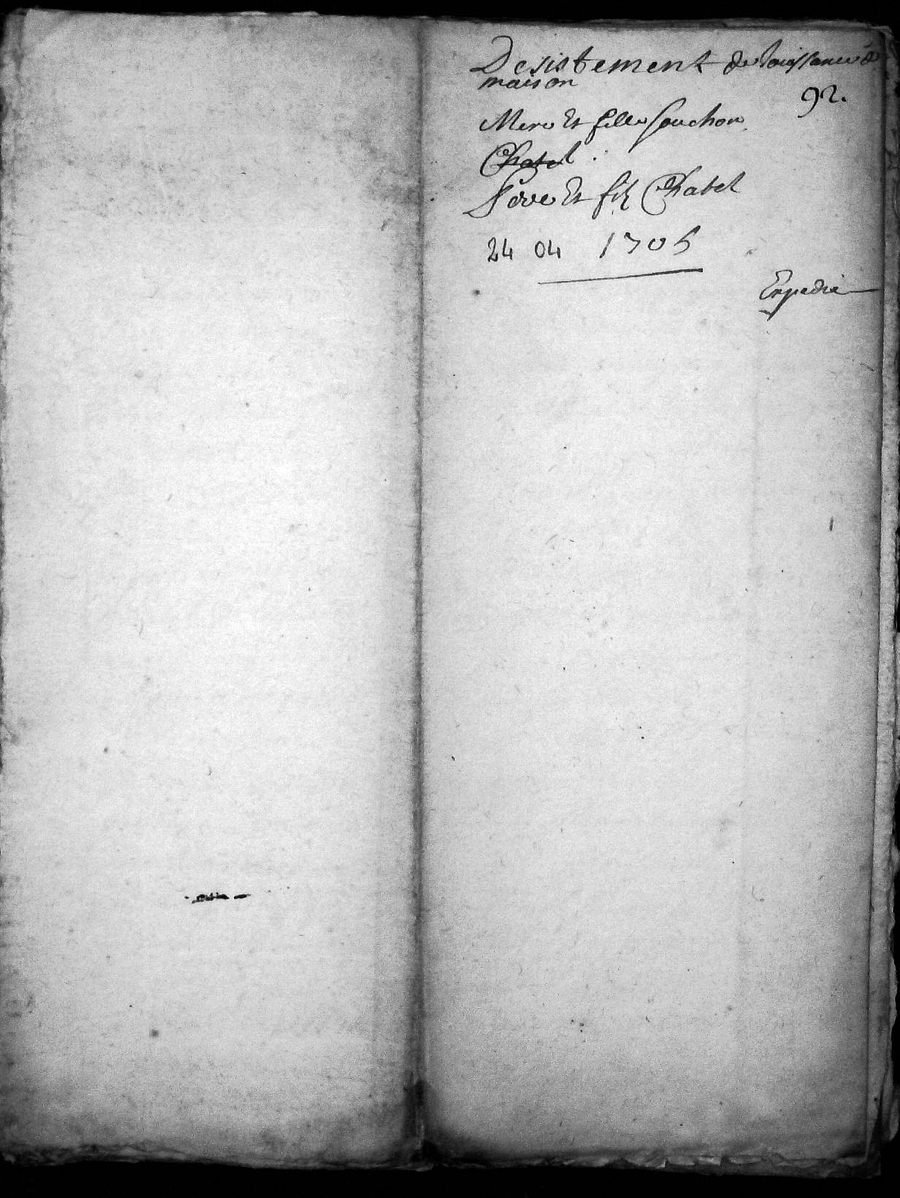 Desistement de Jouissance de
maison
92.
Mere Et fille Souchon
Chatel
Pere Et fils Chatel
24 04 1705
Expedié